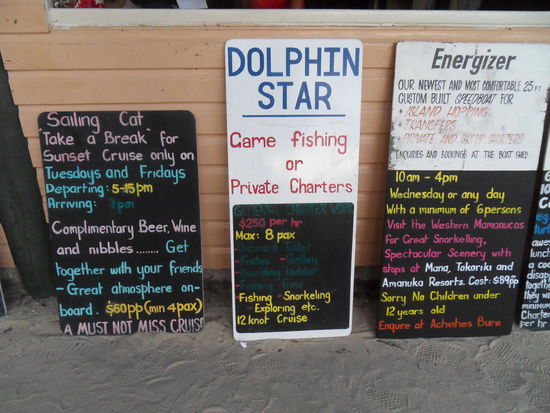 Sailing Cat
"Take a Break" for
Sunset Cruise only on
Tuesdays and Fridays
Departing: 5-15pm
Arriving: 7pm
Complimentary Beer, Wine
and nibbles........ Get
together with your friends
- Great atmosphere on-
board. $60pp (min 4pax)
A MUST NOT MISS CRUISE
DOLPHIN
STAR
Game fishing
or
Private Charters
$250 per hr
Max: 8 pax
Toilet
- Fridge - Galley
- Boarding ladder
- Fishing Gear
Fishing - Snorkeling
- Exploring etc.
12 knot Cruise
Energizer
OUR NEWEST AND MOST COMFORTABLE 25 FT
CUSTOM BUILT SPEEDBOAT FOR
ISLAND HOPPING
TRANSFERS
PRIVATE AND CHARTERS
ENQUIRIES AND BOOKINGS AT THE BOAT SHED.
10am - 4pm
Wednesday or any day
With a minimum of 6 persons
Visit the Western Mamanucas
for Great Snorkelling,
Spectacular Scenery with
stops at Mana, Tokoriki and
Amanuka Resorts. Cost: $89pp
Sorry No Children under
12 years old
Enquire at Activities Bure